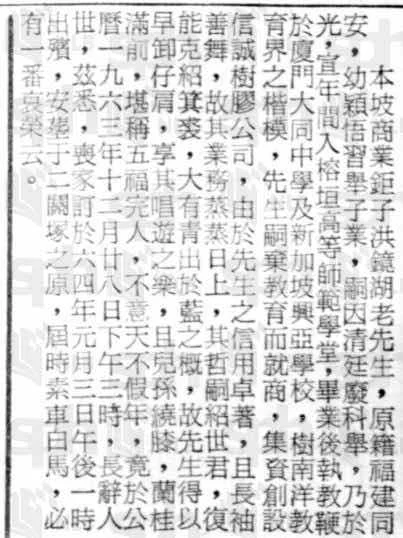 本坡商業鉅子洪鏡湖老先生，原籍福建同
安，幼穎悟習舉子業，嗣因清廷廢科舉，乃於
光，宣年間入榕垣高等師範學堂，畢業後執教鞭
於廈門大同中學及新加坡興亞學校，樹南洋教
育界之楷模，先生嗣棄教育而就商，集資創設
信誠樹膠公司，由於先生之信用卓著，且長袖
善舞，故其業務蒸蒸日上，其哲嗣紹世君，復
能克紹箕裘，大有青出於藍之概，故先生得以
早卸仔肩，享其唱遊之樂，且兒孫繞膝，蘭桂
滿前，堪稱五福完人，不意天不假年，竟於公
曆一九六三年十二月廿八日下午三時，長辭人
世，茲悉，喪家訂於六四年元月三日午後一時
出殯，安塟于二閣塚之原，屆時素車白馬，必
有一番哀榮云。